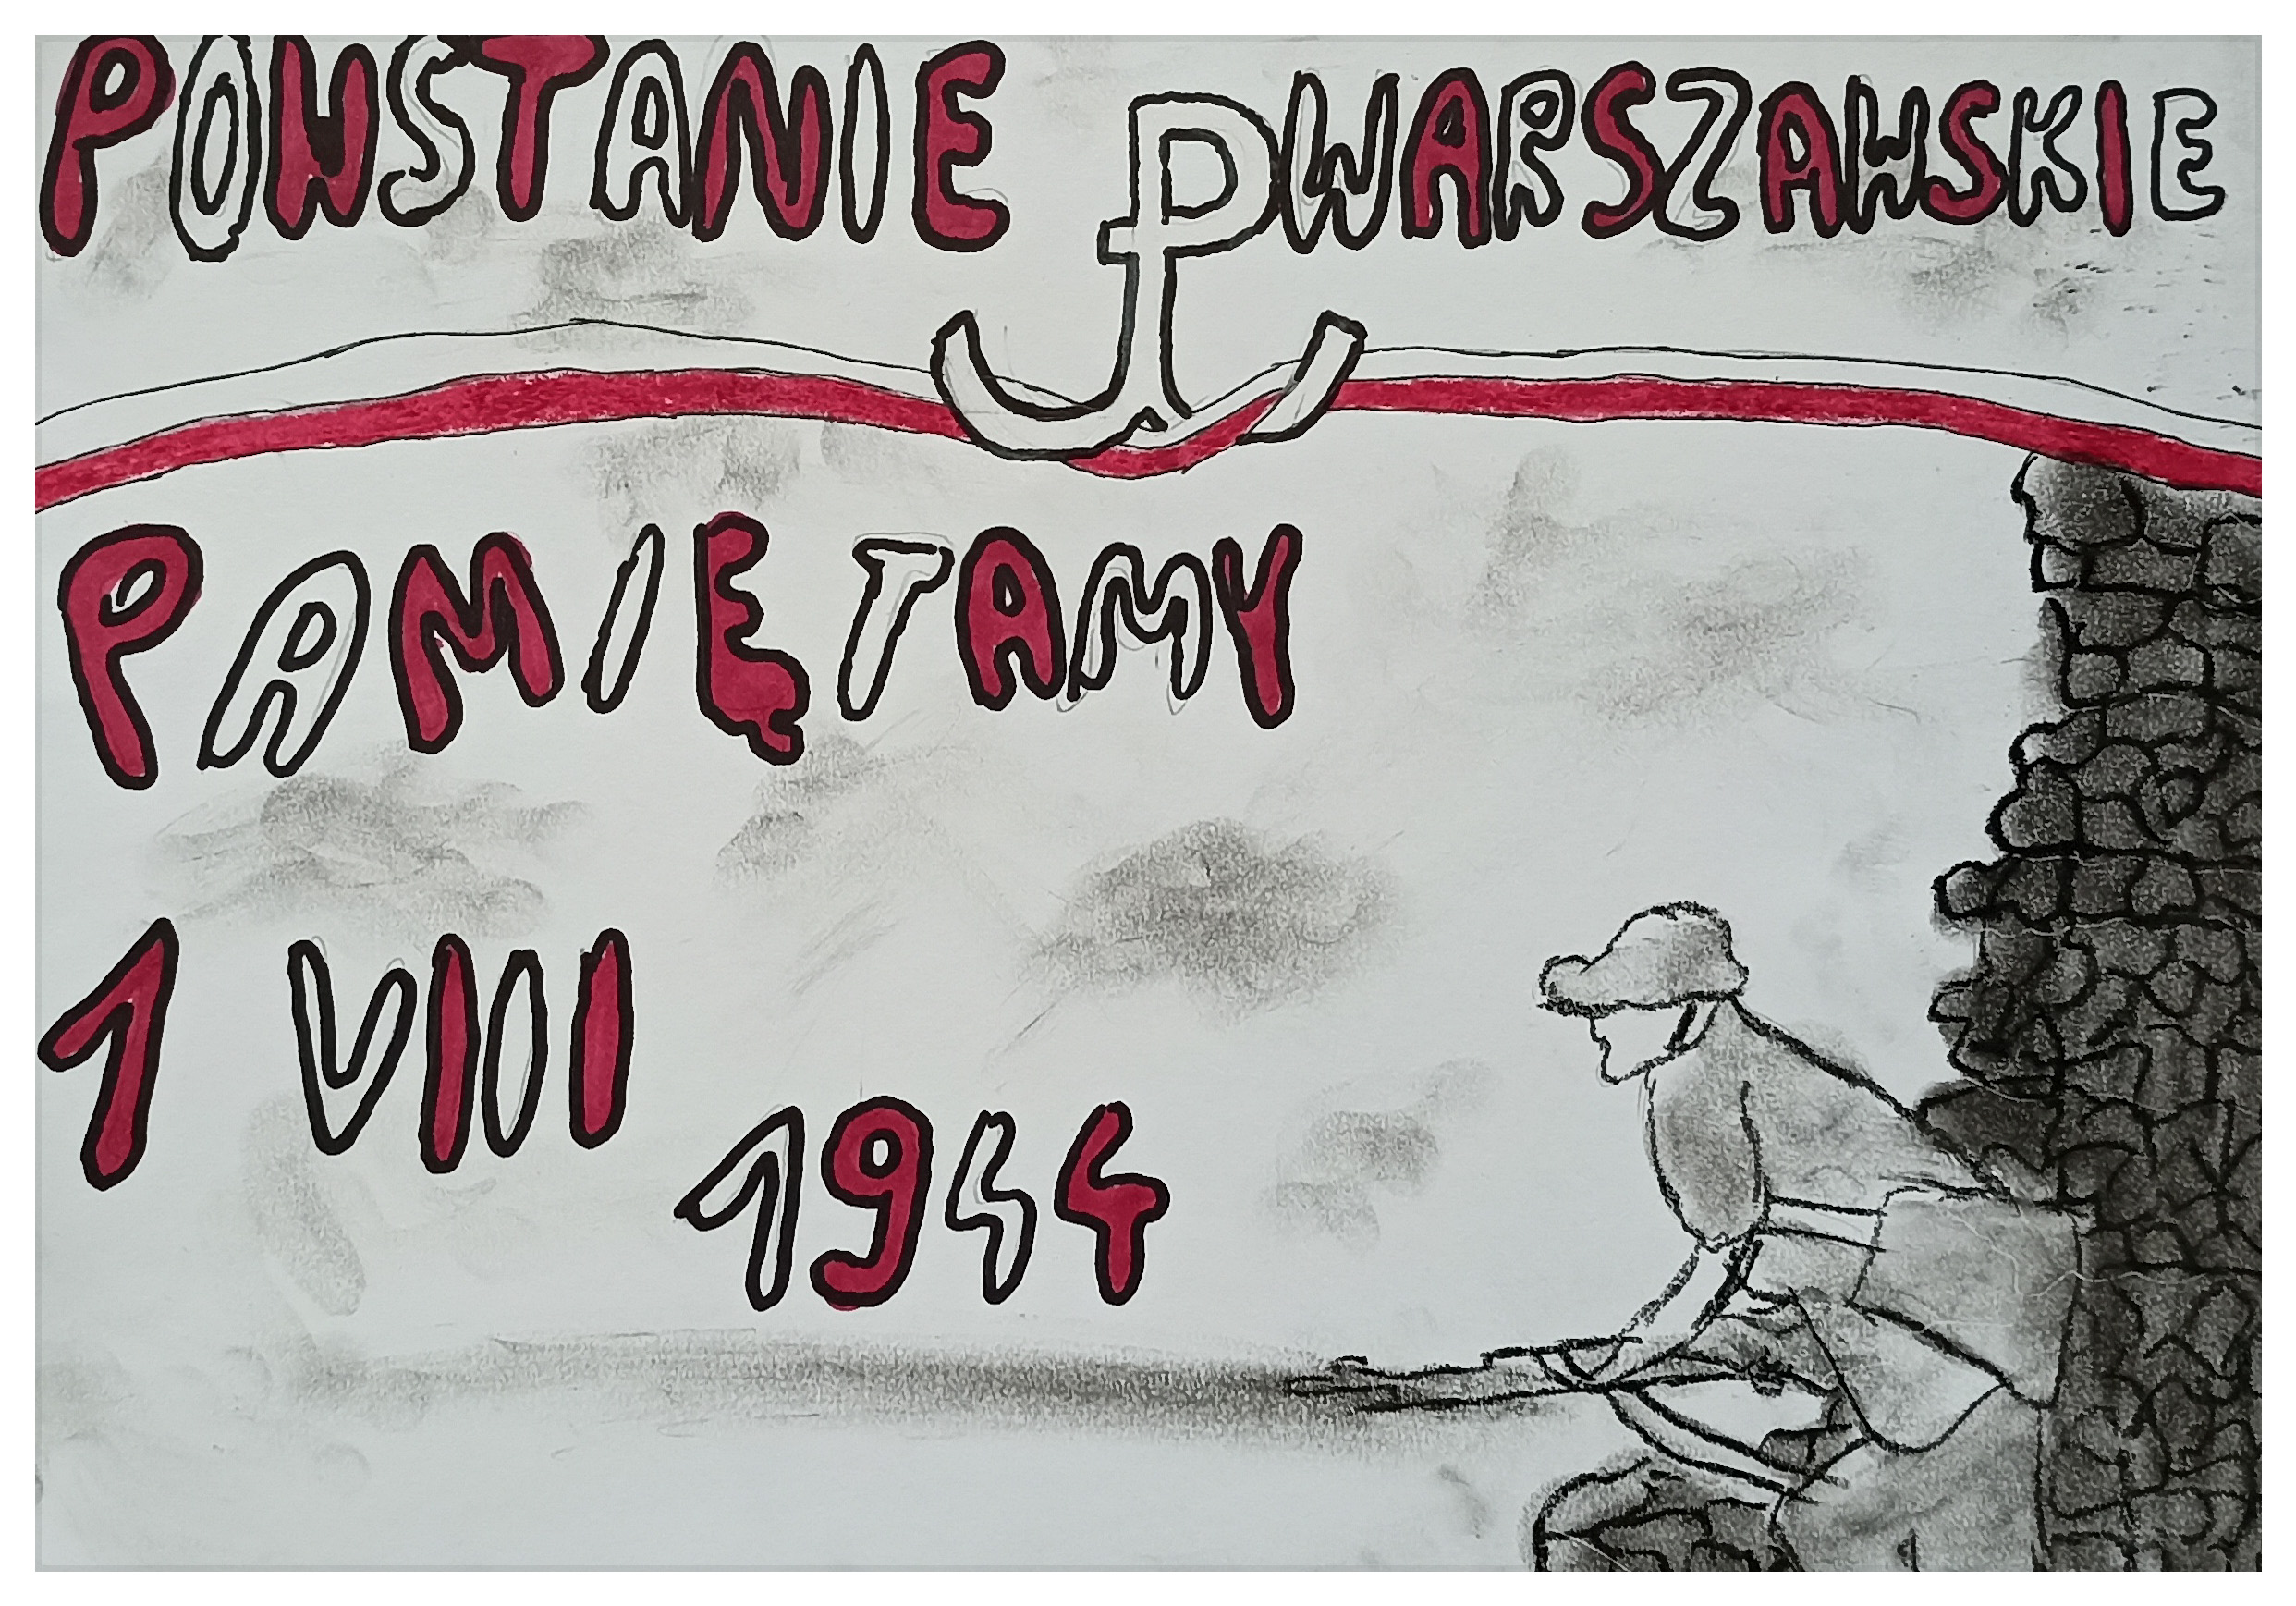 POWSTANIE WARSZAWSKIE
PAMIĘTAMY
1 VIII
1944